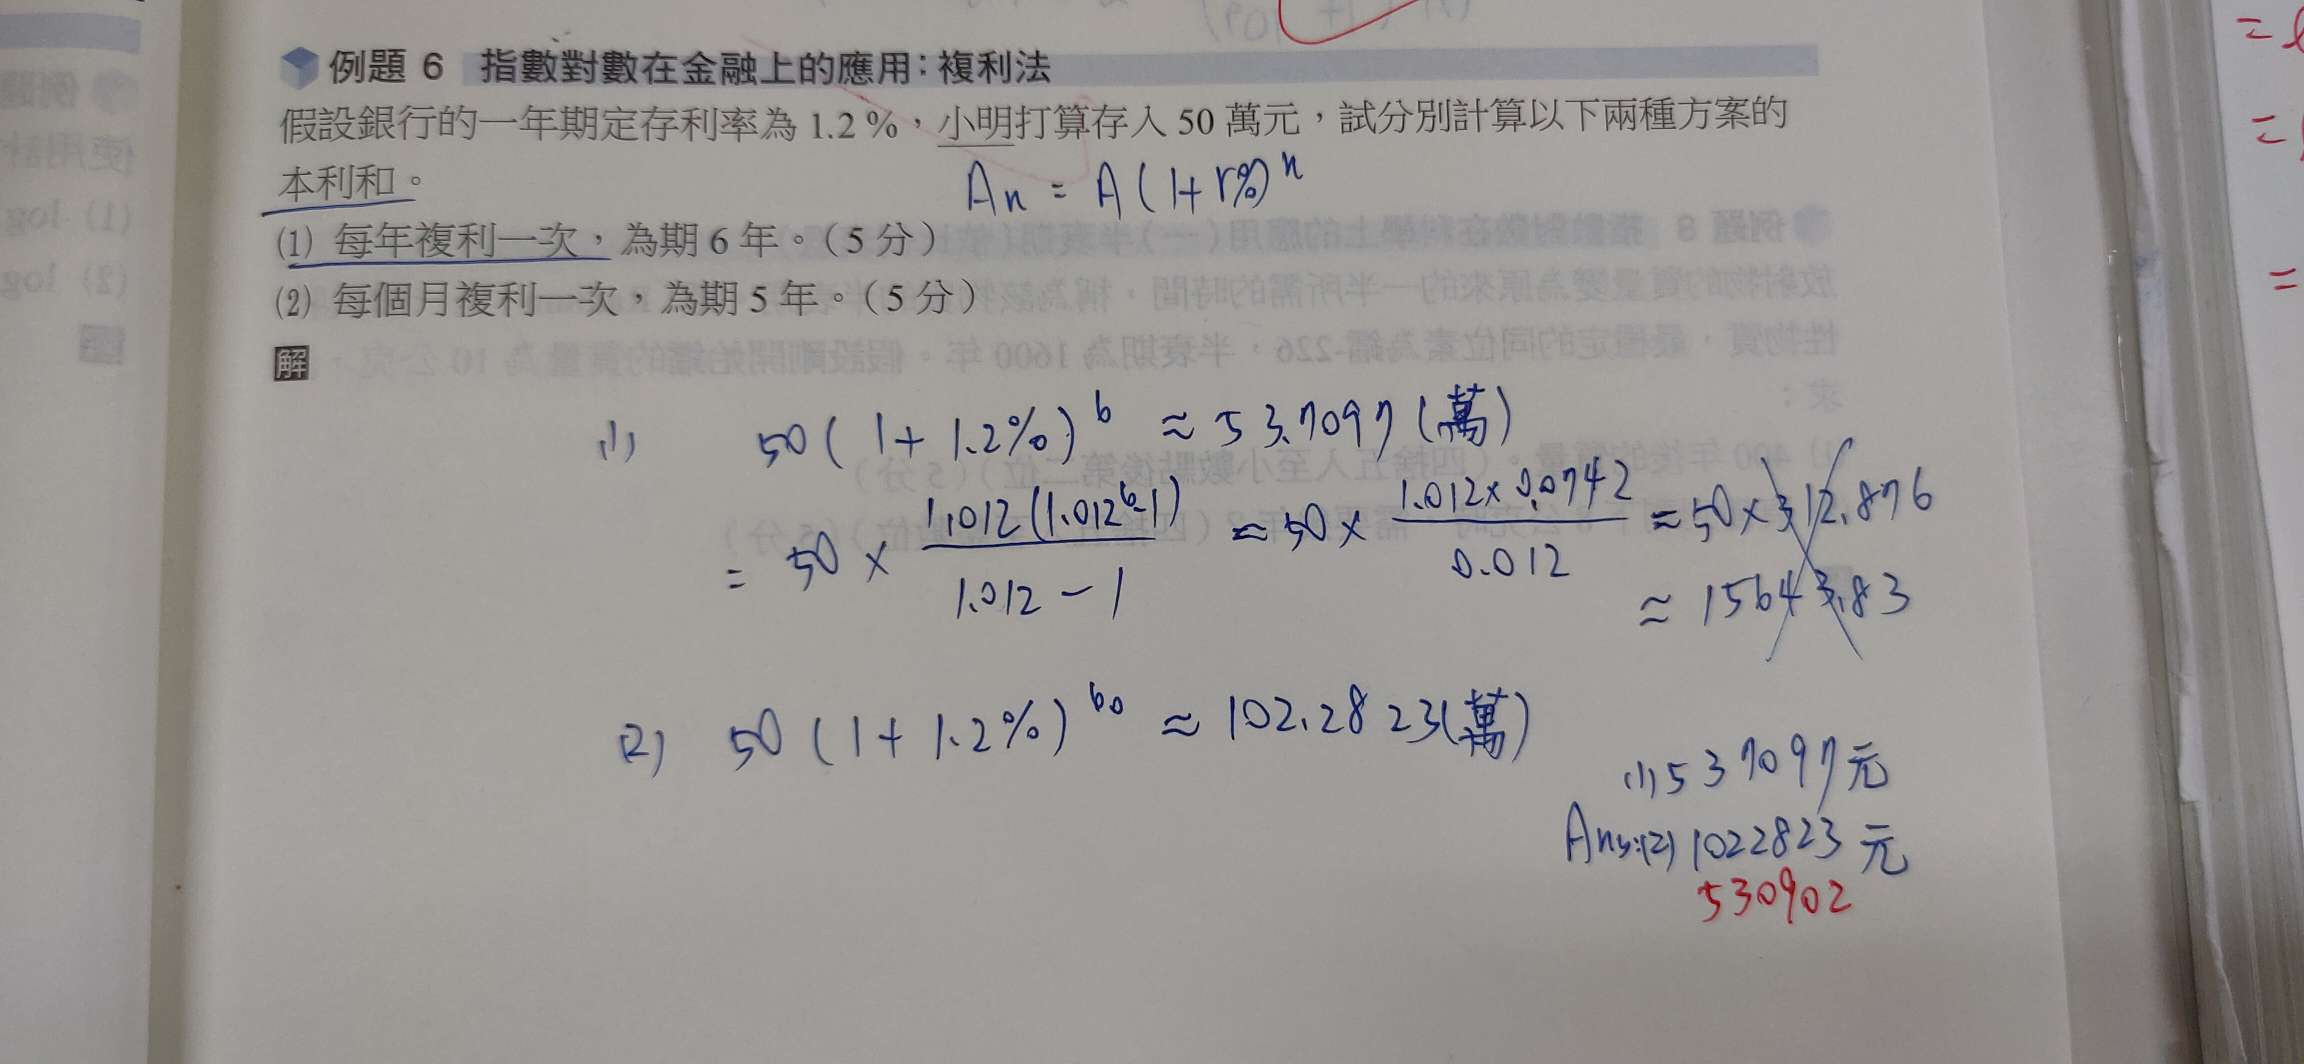 例題 6 指數對數在金融上的應用：複利法
假設銀行的一年期定存利率為 1.2 %，小明打算存入 50 萬元，試分別計算以下兩種方案的
本利和。
An = A (1+r%)^n
(1) 每年複利一次，為期 6 年。（5 分）
(2) 每個月複利一次，為期 5 年。（5 分）
解
(1) 50 ( 1 + 1.2% )^6 ≈ 53.7097 (萬)
= 50 × 1.012(1.012^6-1) / 1.012 - 1 ≈ 50 × 1.012×0.0742 / 0.012 ≈ 50 × 312.876
≈ 15643.83
(2) 50 ( 1 + 1.2% )^60 ≈ 102.2823(萬)
(1) 537097元
Ans:(2) 1022823元
530902